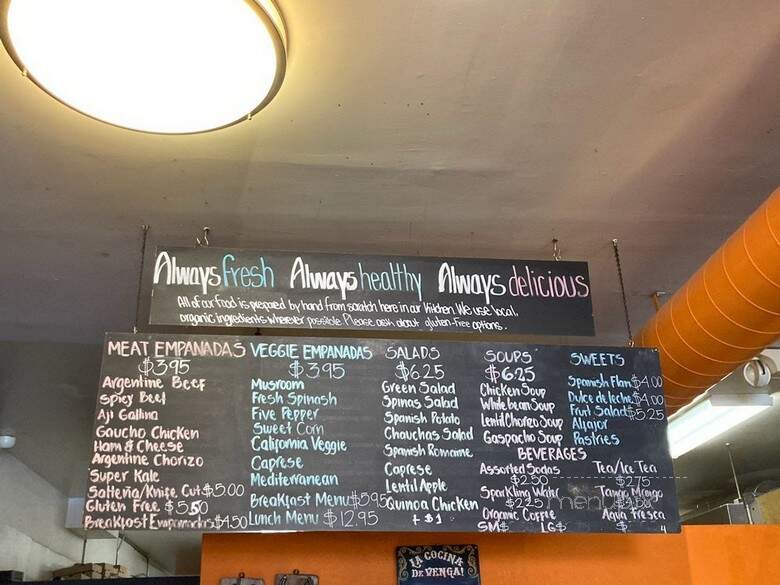 Always fresh Always healthy Always delicious
All of our food is prepared by hand from scratch here in our kitchen. We use local,
organic ingredients wherever possible. Please ask about gluten-free options.
MEAT EMPANADAS
$3.95
Argentine Beef
Spicy Beef
Aji Gallina
Gaucho Chicken
Ham & Cheese
Argentine Chorizo
Super Kale
Salteña/Knife Cut $5.00
Gluten Free $5.50
Breakfast Empanadas $4.50
VEGGIE EMPANADAS
$3.95
Musroom
Fresh Spinash
Five Pepper
Sweet Corn
California Veggie
Caprese
Mediterranean
Breakfast Menu $5.95
Lunch Menu $12.95
SALADS
$6.25
Green Salad
Spinas Salad
Spanish Potato
Chauchas Salad
Spanish Romaine
Caprese
Lentil Apple
Quinoa Chicken
+ $1
SOUPS
$6.25
Chicken Soup
White bean Soup
Lentil Chorizo Soup
Gaspacho Soup
SWEETS
Spanish Flan $4.00
Dulce de leche $4.00
Fruit Salad $5.25
Alfajor
Pastries
BEVERAGES
Assorted Sodas
$2.50
Sparkling Water
$2.25
Organic Coffee
SM $ LG $
Tea/Ice Tea
$2.75
Tango Mango
Agua Fresca
$
LA COCINA
DE VENGA!